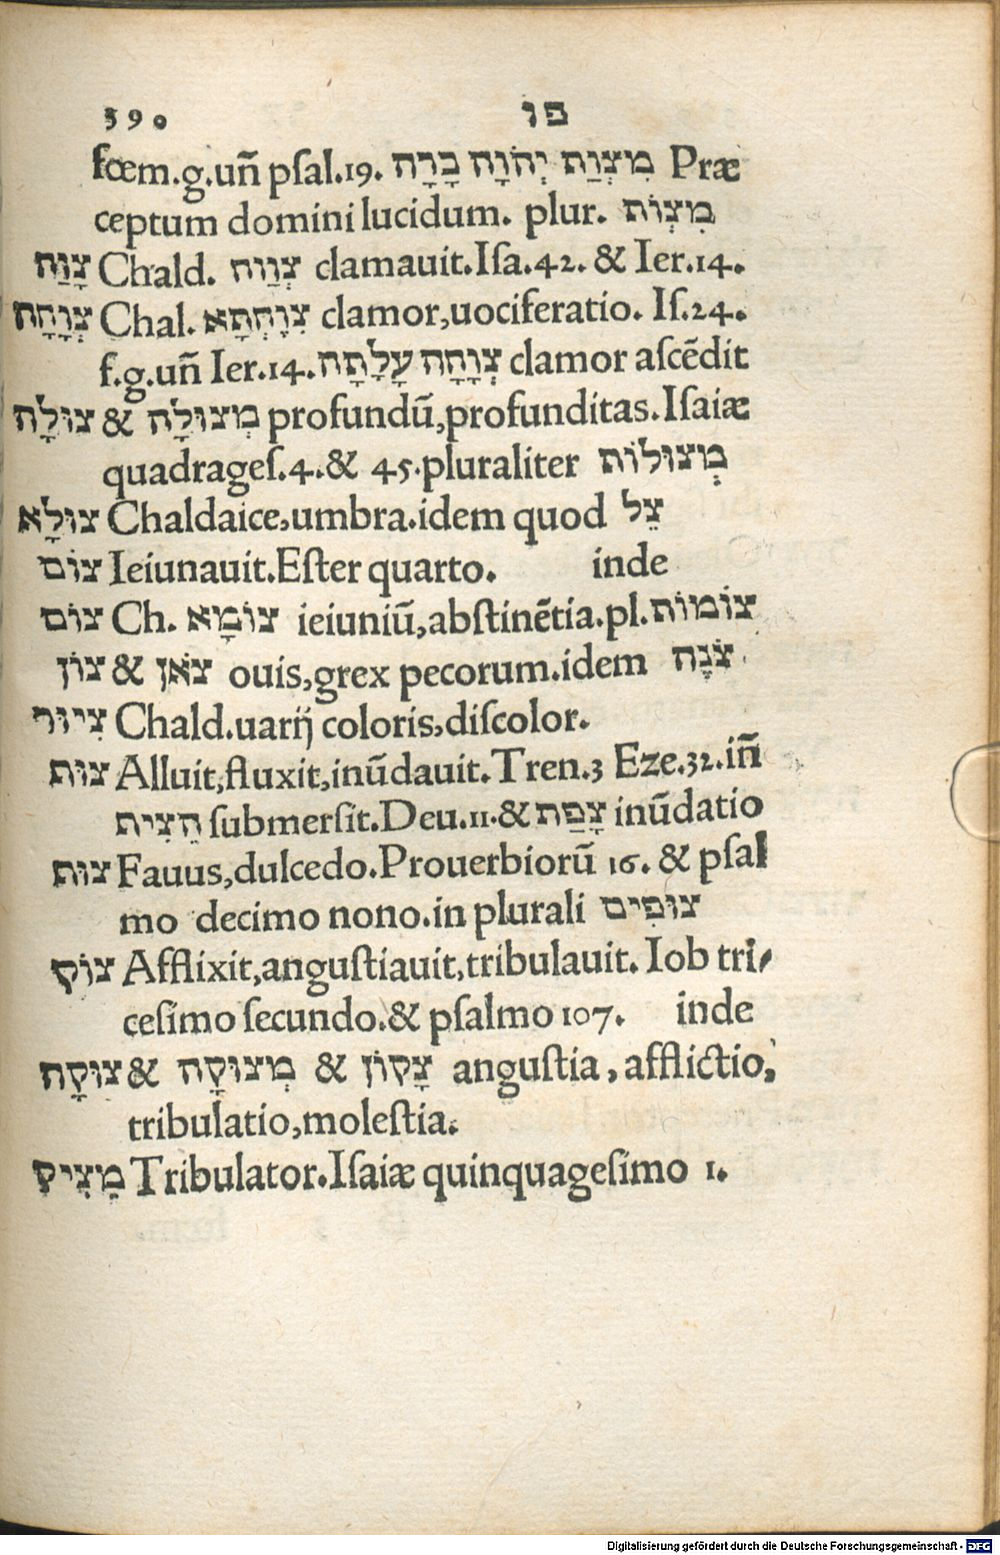 390 פו
fœm.g.un̄ psal.19. מִצְוַת יְהֹוָה בָּרָה Præ
ceptum domini lucidum. plur. מִצְוֹת
צָוַח Chald. צְוַוח clamauit.Isa.42. & Ier.14.
צְוָחָה Chal. צִוַחְתָא clamor,uociferatio. Is.24.
f.g.un̄ Ier.14. צְוָחָה עָלָתָה clamor ascēdit
צוּלָה & מְצוּלָה profundū,profunditas.Isaiæ
quadrages.4.& 45.pluraliter מְצוּלוֹת
צוּלָא Chaldaice,umbra.idem quod צֵל
צום Ieiunauit.Ester quarto. inde
צום Ch. צוֹמָא ieiuniū,abstinētia.pl. צוֹמוֹת
צוֹן & צֹאן ouis,grex pecorum.idem צֹנֶה
צִיור Chald.uarij coloris,discolor.
צוּת Alluit,fluxit,inūdauit.Tren.3 Eze.32.in̄
הֵצִית submersit.Deu.11.& צָפַת inūdatio
צוּת Fauus,dulcedo.Prouerbiorū 16. & psal
mo decimo nono.in plurali צוּפִים
צוֹק Afflixit,angustiauit,tribulauit. Iob tri/
cesimo secundo.& psalmo 107. inde
צוּקָה & מְצוּקָה & צָקוֹן angustia, afflictio,
tribulatio,molestia.
מֵצִיק Tribulator.Isaiæ quinquagesimo 1.
Digitalisierung gefördert durch die Deutsche Forschungsgemeinschaft - DFG